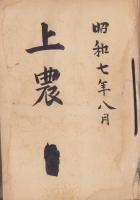 昭和七年八月
上農